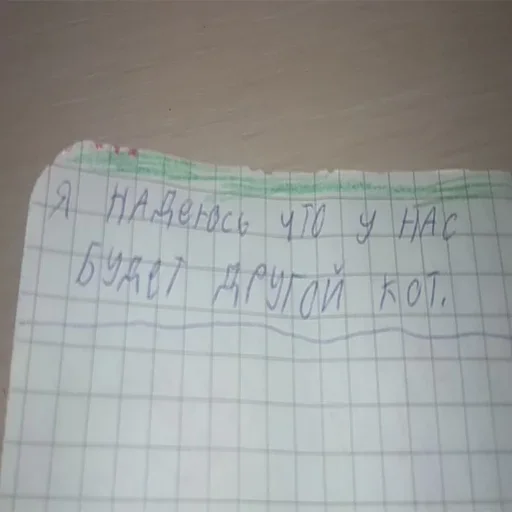 Я НАДеюсь ЧТО У НАС
БУДеТ ДРУГОЙ КОТ.